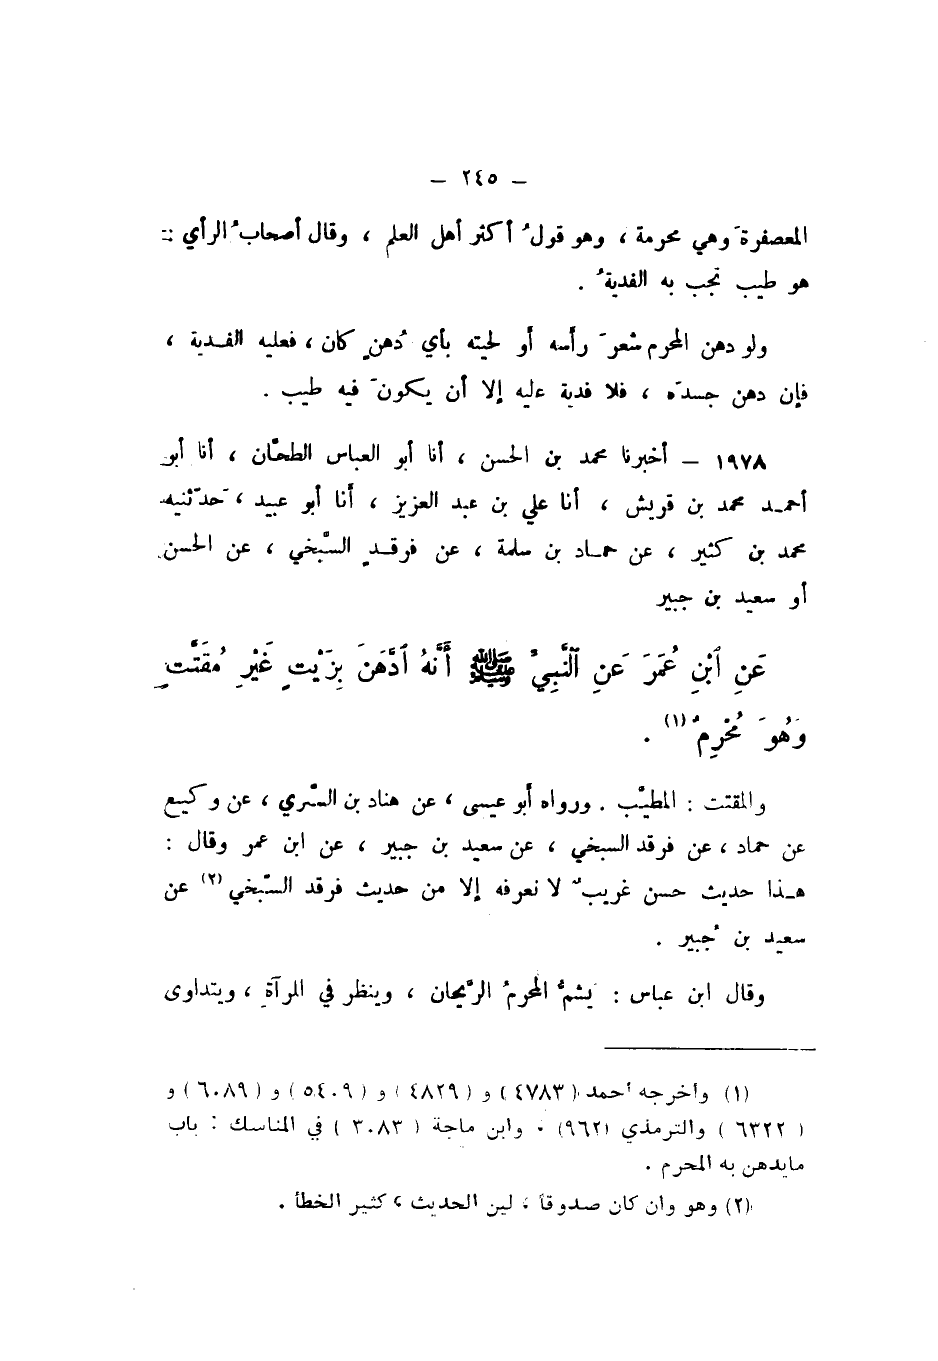 – ٢٤٥ –
المعصفرةَ وهي محرمة ، وهو قولُ أكثر أهل العلم ، وقال أصحابُ الرأي :
هو طيب تجب به الفديةُ .
ولو دهن المحرم شعرَ رأسه أو لحيته بأي دُهنٍ كان ، فعليه الفـدية ،
فإن دهن جسدَه ، فلا فدية عليه إلا أن يكونَ فيه طيب .
١٩٧٨ – أخبرنا محمد بن الحسن ، أنا أبو العباس الطحّان ، أنا أبو
أحمـد محمد بن قريش ، أنا علي بن عبد العزيز ، أنا أبو عبيد ، حدّثنيه
محمد بن كثير ، عن حمـاد بن سلمة ، عن فرقـدٍ السَّبَخي ، عن الحسن
أو سعيد بن جبير
عَنِ ٱبْنِ عُمَرَ عَنِ ٱلنَّبِيِّ ﷺ أَنَّهُ ٱدَّهَنَ بِزَيْتٍ غَيْرِ مُقَتَّتٍ
وَهُوَ مُحْرِمٌ (١) .
والمقتت : المطيَّب . ورواه أبو عيسى ، عن هناد بن السَّري ، عن وكيع
عن حماد ، عن فرقد السبخي ، عن سعيد بن جبير ، عن ابن عمر وقال :
هـذا حديث حسن غريبٌ لا نعرفه إلا من حديث فرقد السَّبخي (٢) عن
سعيد بن جُبير .
وقال ابن عباس : يَشمُّ المحرمُ الرَّيحان ، وينظر في المرآةِ ، ويتداوى
(١) وأخرجه أحمد ( ٤٧٨٣ ) و ( ٤٨٢٩ ) و ( ٥٤٠٩ ) و ( ٦٠٨٩ ) و
( ٦٣٢٢ ) والترمذي (٩٦٢) ، وابن ماجة ( ٣٠٨٣ ) في المناسك : باب
مايدهن به المحرم .
(٢) وهو وان كان صدوقاً ، لين الحديث ، كثير الخطأ .